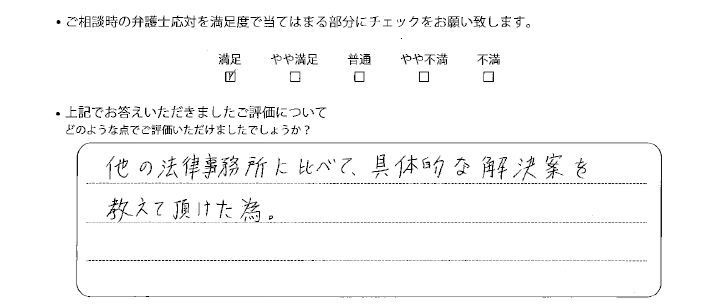 ・ご相談時の弁護士応対を満足度で当てはまる部分にチェックをお願い致します。
満足 やや満足 普通 やや不満 不満
☑ □ □ □ □
・上記でお答えいただきましたご評価について
どのような点でご評価いただけましたでしょうか？
他の法律事務所に比べて、具体的な解決案を
教えて頂けた為。